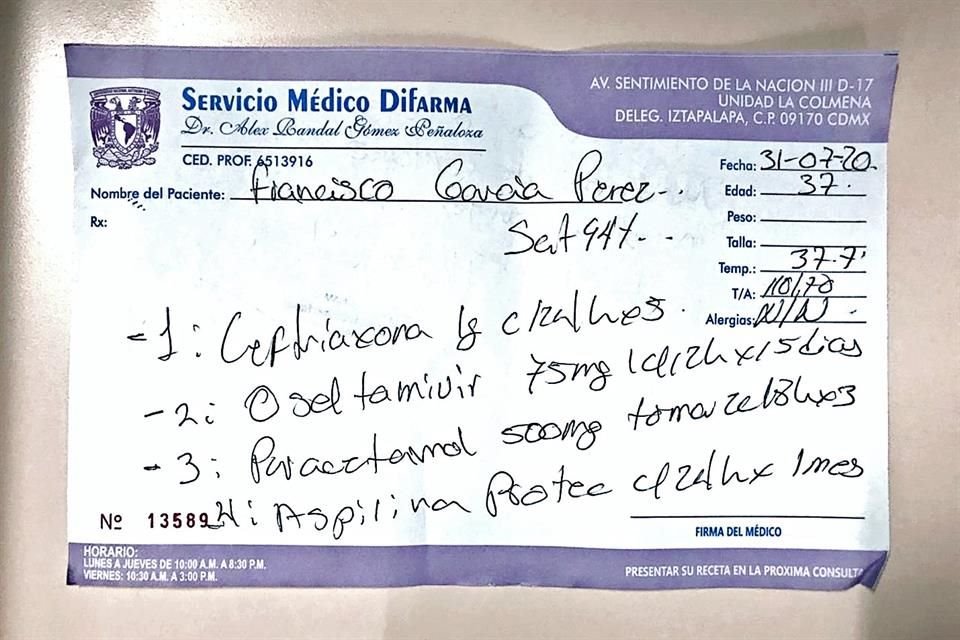 AV. SENTIMIENTO DE LA NACION III D-17
UNIDAD LA COLMENA
DELEG. IZTAPALAPA, C.P. 09170 CDMX
SERVICIO MÉDICO DIFARMA
Dr. Alex Randal Gómez Peñaloza
CED. PROF. 6513916
Fecha: 31-07-20
Nombre del Paciente: Francisco Garcia Perez
Edad: 37
Rx:
Peso:
Sat 94%
Talla:
Temp.: 37.7
T/A: 110/70
Alergias: N/N
-1: Ceftriaxona 1g c/24hx3
-2: Oseltamivir 75mg 1c/12hx/5 dias
-3: Paracetamol 500mg tomar 2c/8hx3
4: Aspilina Protec c/24hx 1 mes
Nº 13589
FIRMA DEL MÉDICO
HORARIO:
LUNES A JUEVES DE 10:00 A.M. A 8:30 P.M.
VIERNES: 10:30 A.M. A 3:00 P.M.
PRESENTAR SU RECETA EN LA PROXIMA CONSULTA